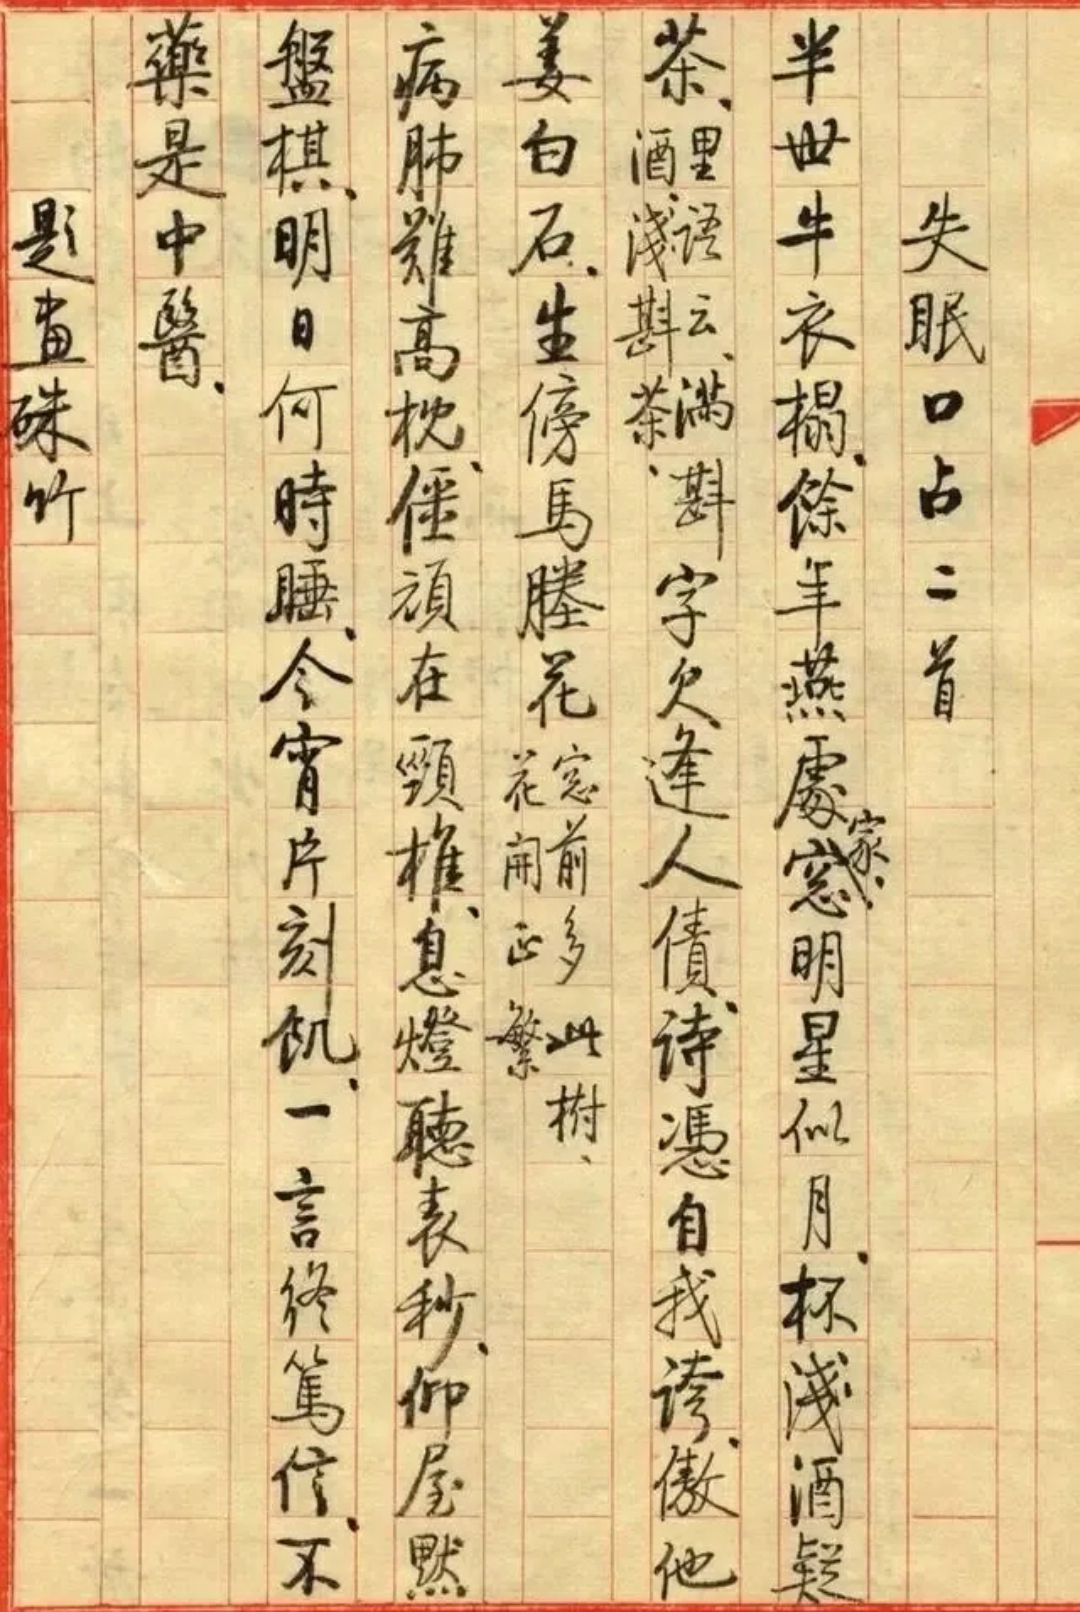 失眠口占二首
半世牛衣榻、餘年燕處家、窓明星似月、杯淺酒疑
茶、里語云、滿斟酒、淺斟茶、斟字欠逢人債、詩憑自我誇、傲他
姜白石、生傍馬塍花窓前多此樹、花開正繁
病肺難高枕、僵頑在頸椎、息燈聽表秒、仰屋默
盤棋、明日何時睡、今宵片刻飢、一言終篤信、不
藥是中醫、
題畫硃竹